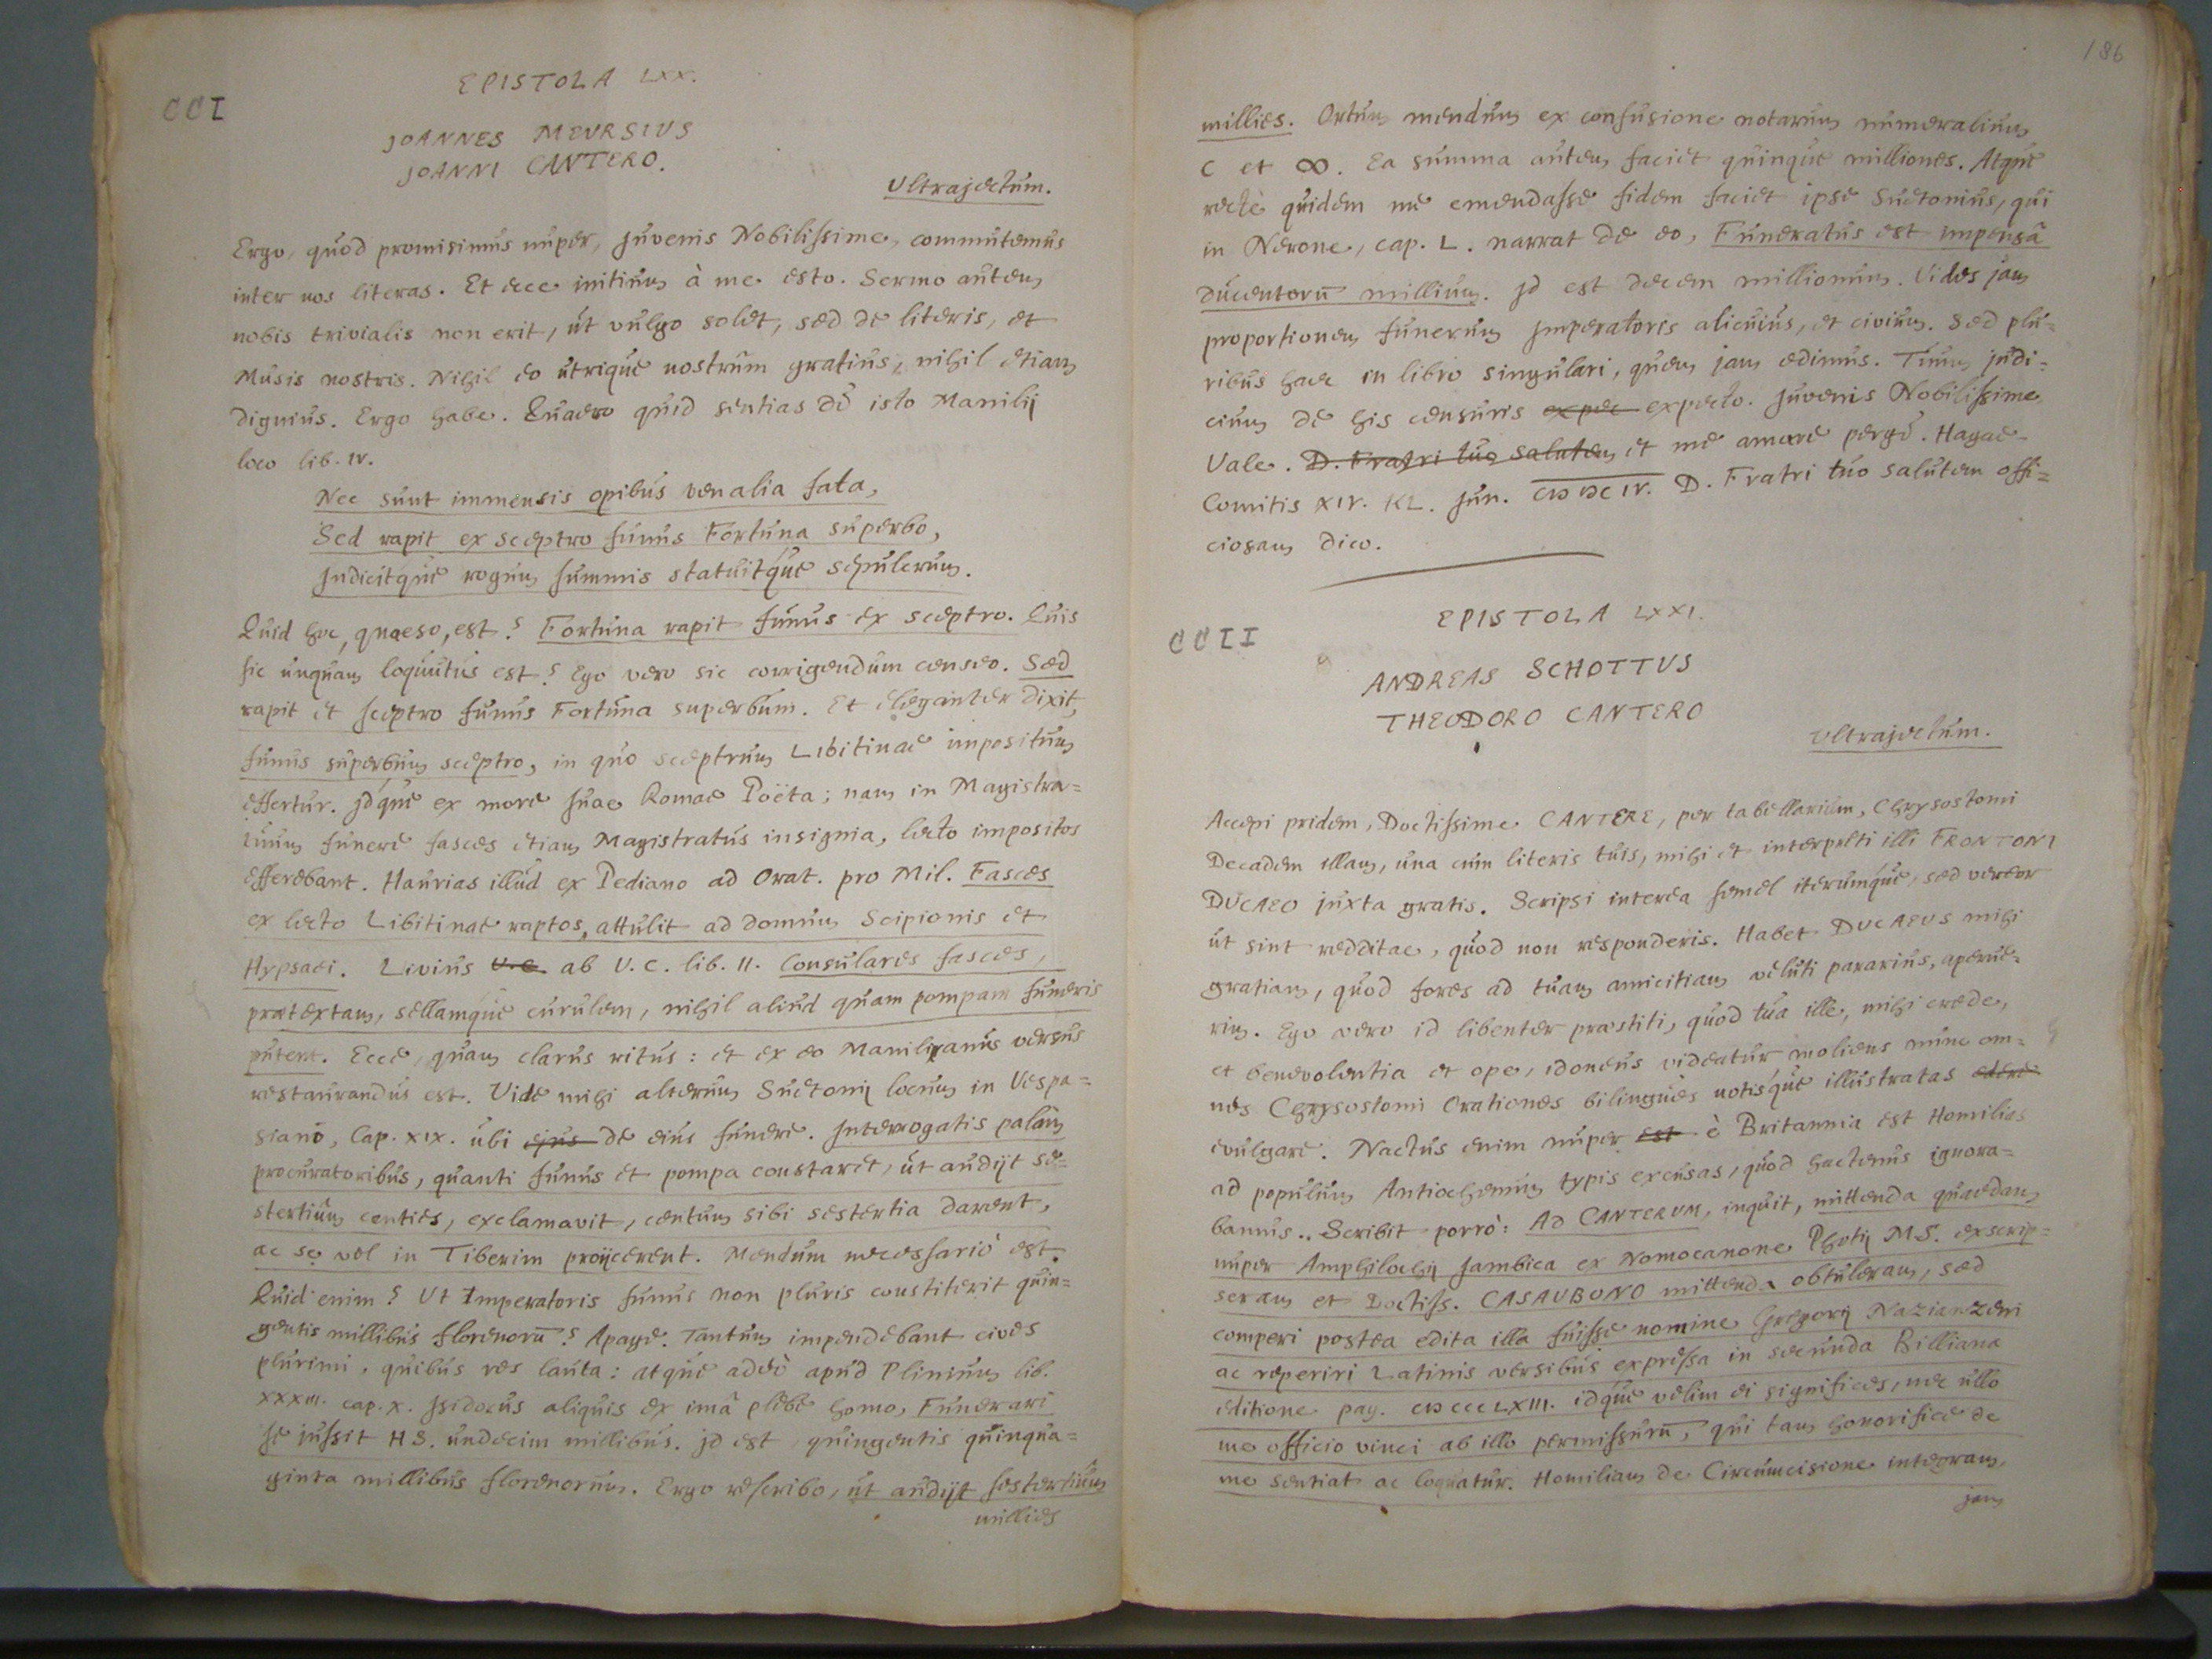 EPISTOLA LXX.
CCI
JOANNES MEURSIUS
JOANNI CANTERO.
Ultrajectum.
Ergo, quod promisimus nuper, Juvenis Nobilissime, commutemus
inter nos literas. Et ecce initium à me esto. Sermo autem
nobis trivialis non erit, ut vulgo solet, sed de literis, et
Musis nostris. Nihil eo utrique nostrum gratius, nihil etiam
dignius. Ergo habe. Quaero quid sentias de isto Manilij
loco lib. IV.
Nec sunt immensis opibus venalia fata,
Sed rapit ex sceptro funus Fortuna superbo,
Indicitque rogum summis statuitque sepulcrum.
Quid hoc, quaeso, est? Fortuna rapit funus ex sceptro. Quis
sic unquam loquutus est? Ego vero sic corrigendum censeo. Sed
rapit et sceptro funus Fortuna superbum. Et eleganter dixit,
funus superbum sceptro, in quo sceptrum Libitinae impositum
effertur. Idque ex more suae Romae Poëta; nam in Magistra=
tuum funere fasces etiam Magistratus insignia, lecto impositos
efferebant. Haurias illud ex Pediano ad Orat. pro Mil. Fasces
ex lecto Libitinae raptos, attulit ad domum Scipionis et
Hypsaei. Livius U.C. ab U.C. lib. II. Consulares fasces,
praetextam, sellamque curulem, nihil aliud quam pompam funeris
putent. Ecce, quam clarus ritus: et ex eo Manilianus versus
restaurandus est. Vide mihi alterum Suetonij locum in Vespa=
siano, Cap. XIX. ubi ejus de eius funere. Interrogatis palam
procuratoribus, quanti funus et pompa constaret, ut audijt se=
stertium centies, exclamavit, centum sibi sestertia darent,
ac se vel in Tiberim projicerent. Mendum necessariò est.
Quid enim? Ut Imperatoris funus non pluris constiterit quin=
gentis millibus florenorū? Apage. Tantum impendebant cives
plurimi, quibus res lauta: atque adeò apud Plinium lib.
XXXIII. cap. X. Isidorus aliquis ex imâ plebe homo, Funerari
se jussit HS. undecim millibus. Id est, quingentis quinqua=
ginta millibus florenorum. Ergo rescribo, ut audijt sestertium
millies
186
millies. Ortum mendum ex confusione notarum numeralium
C et ∞. Ea summa autem faciet quinque milliones. Atque
rectè quidem me emendasse fidem faciet ipse Suetonius, qui
in Nerone, cap. L. narrat de eo, Funeratus est impensâ
ducentorū millium. Id est decem millionum. Vides jam
proportionem funerum Imperatoris alicuius, et civium. Sed plu=
ribus haec in libro singulari, quem jam edimus. Tuum judi=
cium de his censuris expec expecto. Juvenis Nobilissime,
Vale. D. Fratri tuo salutem et me amare perge. Hagae-
Comitis XIV. KL. Jun. CIƆ IƆC IV. D. Fratri tuo salutem offi=
ciosam dico.
EPISTOLA LXXI.
CCII
ANDREAS SCHOTTUS
THEODORO CANTERO
Ultrajectum.
Accepi pridem, Doctissime CANTERE, per tabellarium, Chrysostomi
Decadem illam, una cum literis tuis, mihi et interpreti illi FRONTONI
DUCAEO juxta gratis. Scripsi interea semel iterumque, sed vereor
ut sint redditae, quod non responderis. Habet DUCAEUS mihi
gratiam, quod fores ad tuam amicitiam veluti pararius, aperue=
rim. Ego vero id libenter praestiti, quod tua ille, mihi crede,
et benevolentia et ope, idoneus videatur moliens nunc om=
nes Chrysostomi Orationes bilingues notisque illustratas edere
evulgare. Nactus enim nuper est è Britannia est Homilias
ad populum Antiochenum typis excusas, quod hactenus ignora=
bamus.. Scribit porrò: Ad CANTERUM, inquit, mittenda quaedam
nuper Amphilochij Iambica ex Nomocanone Photij M.S. exscrip=
seram et Doctiss. CASAUBONO mittenda obtuleram, sed
comperi postea edita illa fuisse nomine Gregorij Nazianzeni
ac reperiri Latinis versibus expressa in secunda Billiana
editione pag. CIƆ CCCLXIII. idque velim ei significes, nec ullo
me officio vinci ab illo permissurū, qui tam honorifice de
me sentiat ac loquatur. Homiliam de Circumcisione integram,
jam